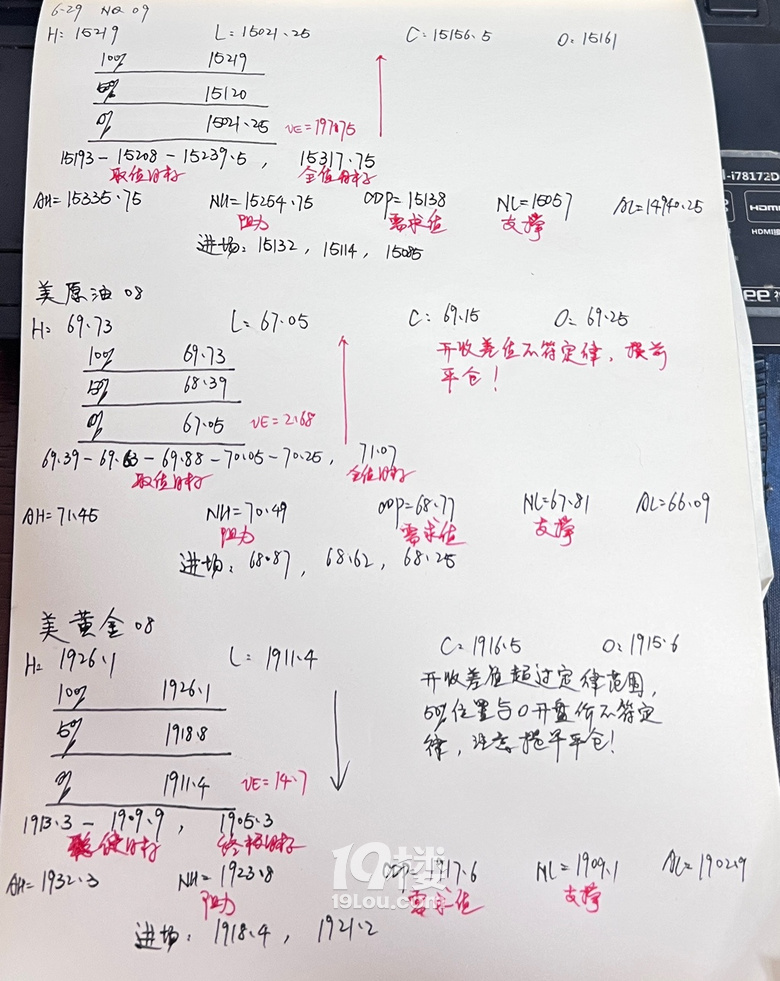 6-29 NQ 09
H= 15219 L= 15021.25 C= 15156.5 O= 15161
100% 15219
50% 15120
0% 15021.25 VE=197.75
15193 - 15208 - 15239.5, 15317.75
取值目标 全值目标
AH= 15335.75 NH= 15254.75 ODP= 15138 NL= 15057 AL= 14940.25
阻力 需求值 支撑
进场: 15132, 15114, 15085
美原油 08
H= 69.73 L= 67.05 C= 69.15 O= 69.25
开收差值不符定律, 提前
平仓!
100% 69.73
50% 68.39
0% 67.05 VE=2.68
69.39 - 69.63 - 69.88 - 70.05 - 70.25, 71.07
取值目标 全值目标
AH= 71.45 NH= 70.49 ODP= 68.77 NL= 67.81 AL= 66.09
阻力 需求值 支撑
进场: 68.87, 68.62, 68.25
美黄金 08
H= 1926.1 L= 1911.4 C= 1916.5 O= 1915.6
开收差值超过定律范围,
50%位置与O开盘价不符定
律, 注意提早平仓!
100% 1926.1
50% 1918.8
0% 1911.4 VE=14.7
1913.3 - 1909.9, 1905.3
值目标 终极目标
AH= 1932.3 NH= 1923.8 ODP= 1917.6 NL= 1909.1 AL= 1902.9
阻力 需求值 支撑
进场: 1918.4, 1921.2
19楼
19Lou.com
-i78172D
HDMI
HDMI接
ee